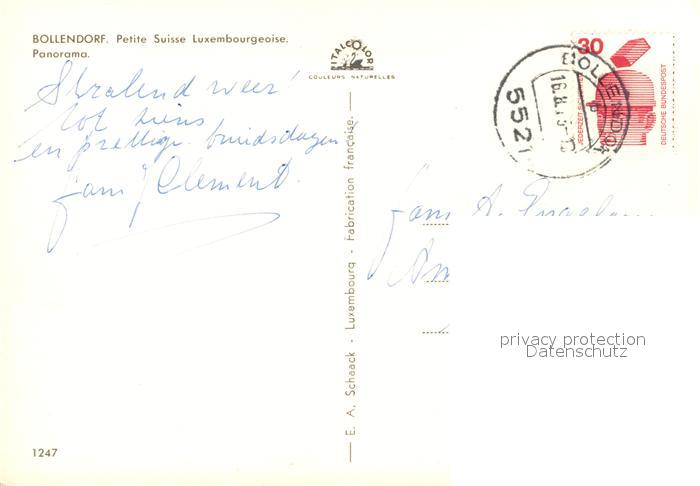 BOLLENDORF. Petite Suisse Luxembourgeoise.
Panorama.
ITALCOLOR
COULEURS NATURELLES
30
JEDERZEIT
DEUTSCHE BUNDESPOST
BOLLENDORF
5521
16.8.
Stralend weer
tot ziens
en prettige
fam Clement.
fam A.
E. A. Schaack - Luxembourg - Fabrication française.
privacy protection
Datenschutz
1247